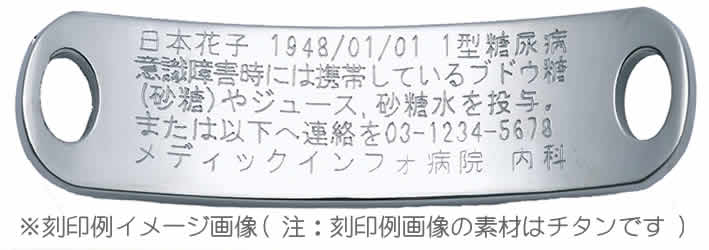 日本花子 1948/01/01 1型糖尿病
意識障害時には携帯しているブドウ糖
(砂糖)やジュース,砂糖水を投与。
または以下へ連絡を03-1234-5678
メディックインフォ病院 内科
※刻印例イメージ画像( 注：刻印例画像の素材はチタンです )